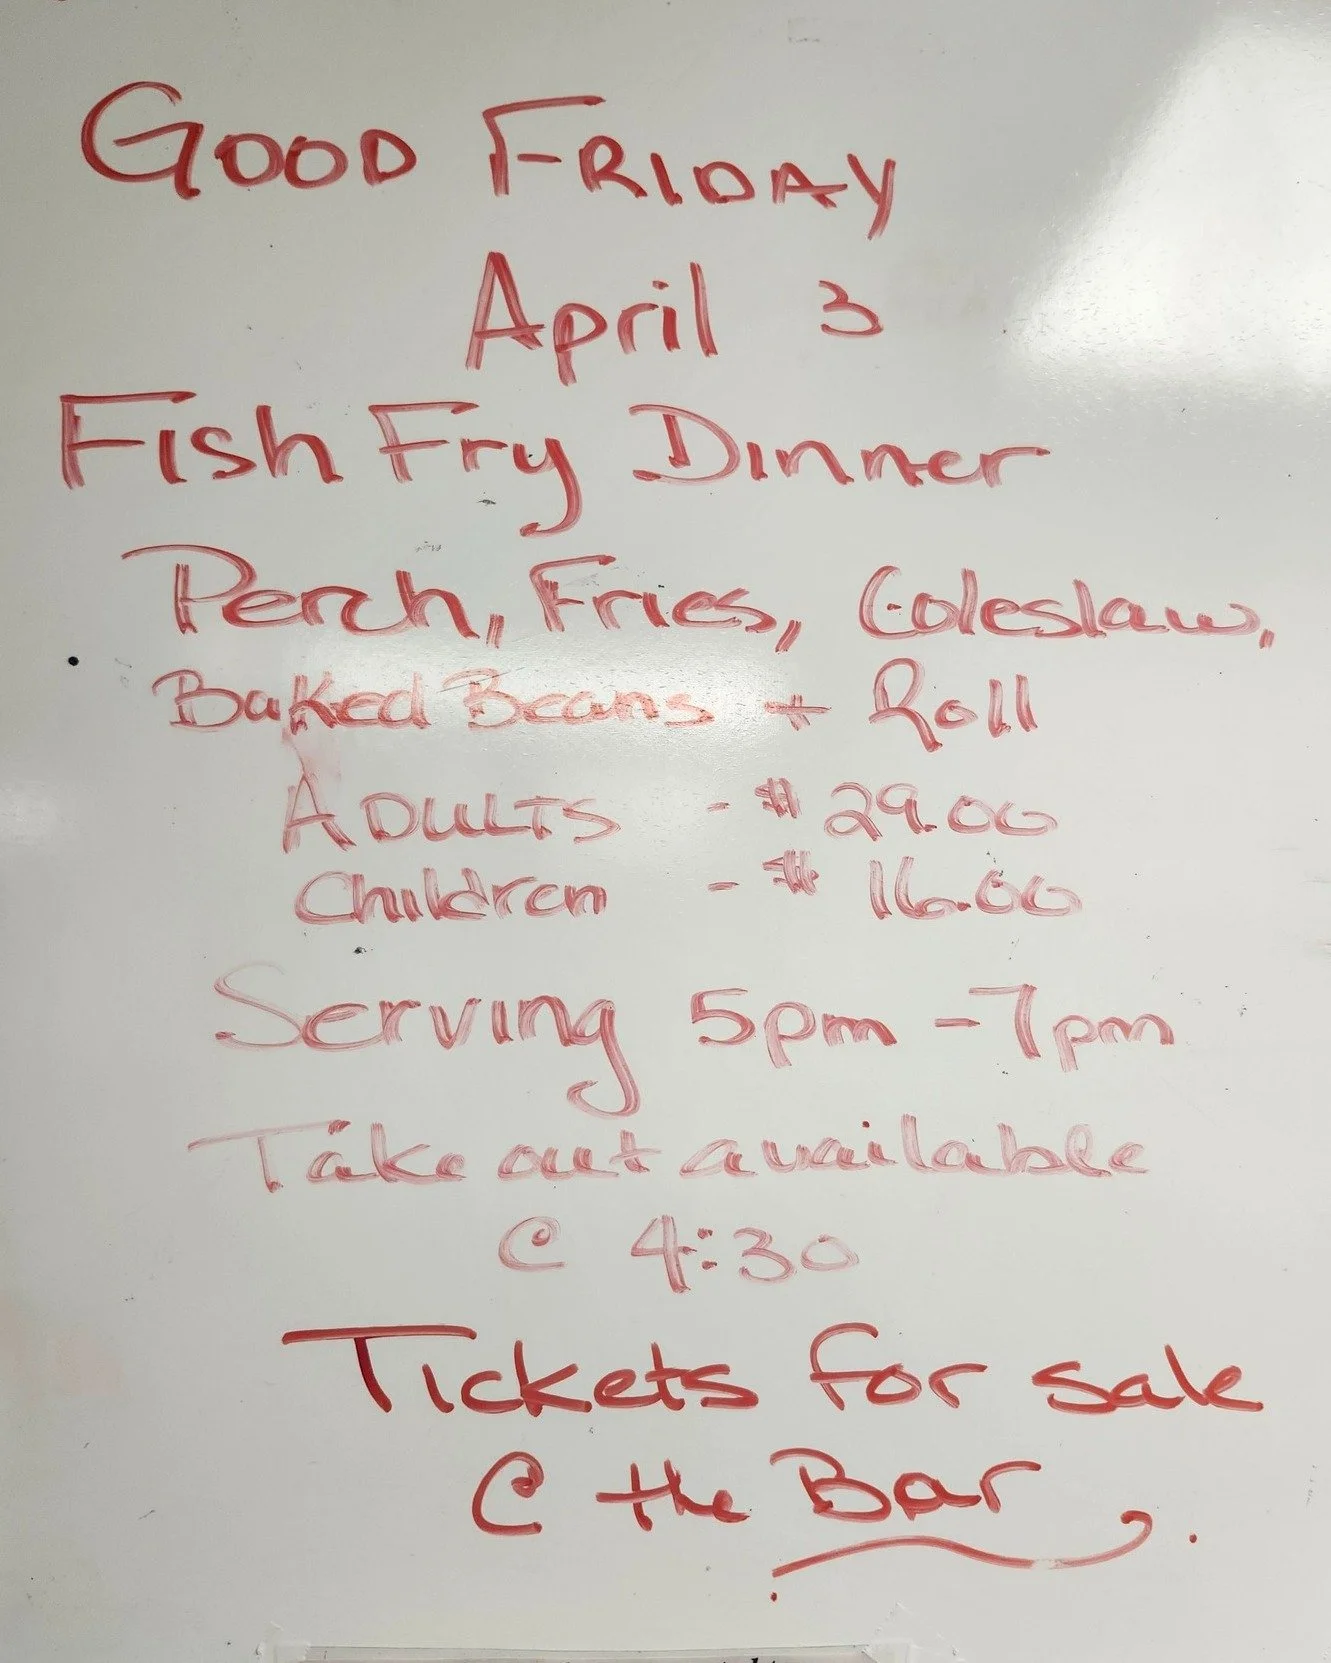 GOOD FRIDAY
April 3
Fish Fry Dinner
Perch, Fries, Coleslaw,
Baked Beans + Roll
ADULTS - $29.00
Children - $16.00
Serving 5pm - 7pm
Take out available
@ 4:30
Tickets for sale
@ the Bar